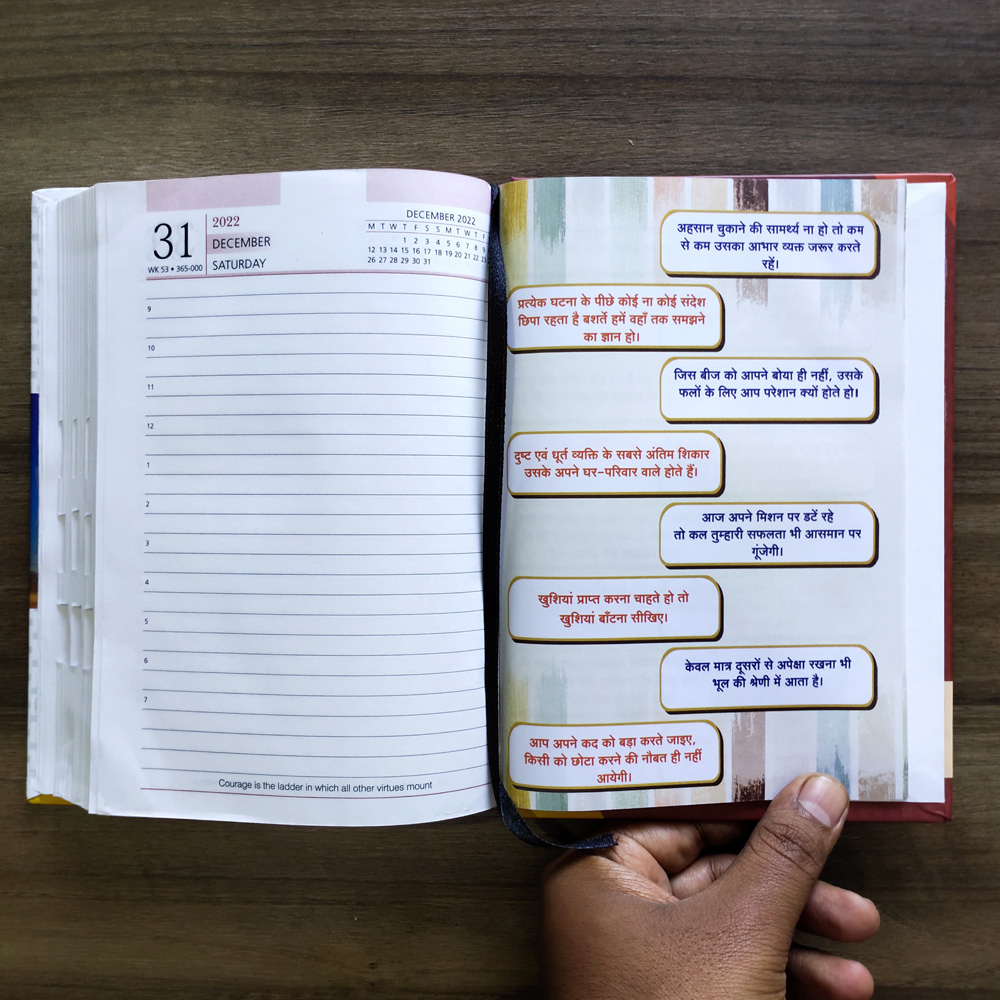 31
2022
DECEMBER
SATURDAY
WK 53 • 365-000
DECEMBER 2022
M T W T F S S M T W T F
1 2 3 4 5 6 7 8 9
12 13 14 15 16 17 18 19 20 21 22 23
26 27 28 29 30 31
9
10
11
12
1
2
3
4
5
6
7
Courage is the ladder in which all other virtues mount
अहसान चुकाने की सामर्थ्य ना हो तो कम
से कम उसका आभार व्यक्त जरूर करते
रहें।
प्रत्येक घटना के पीछे कोई ना कोई संदेश
छिपा रहता है बशर्ते हमें वहाँ तक समझने
का ज्ञान हो।
जिस बीज को आपने बोया ही नहीं, उसके
फलों के लिए आप परेशान क्यों होते हो।
दुष्ट एवं धूर्त व्यक्ति के सबसे अंतिम शिकार
उसके अपने घर-परिवार वाले होते हैं।
आज अपने मिशन पर डटें रहे
तो कल तुम्हारी सफलता भी आसमान पर
गूंजेगी।
खुशियां प्राप्त करना चाहते हो तो
खुशियां बाँटना सीखिए।
केवल मात्र दूसरों से अपेक्षा रखना भी
भूल की श्रेणी में आता है।
आप अपने कद को बड़ा करते जाइए,
किसी को छोटा करने की नौबत ही नहीं
आयेगी।